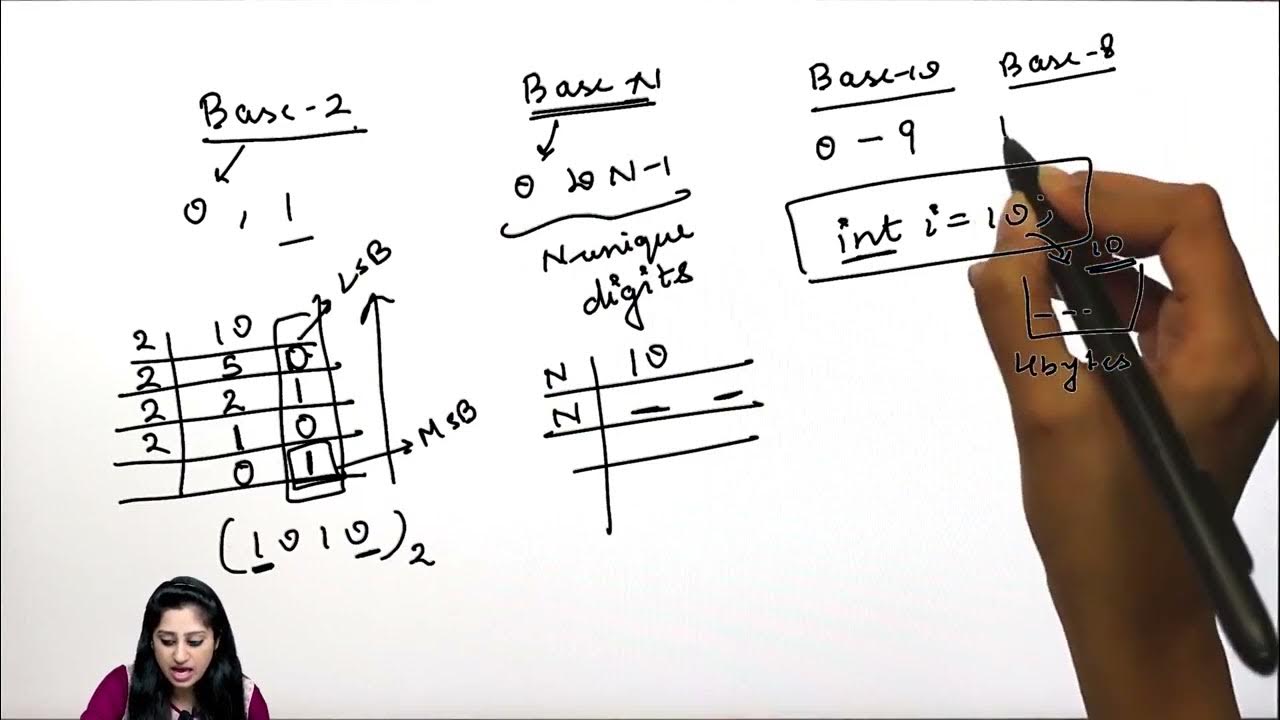 Base-2
0, 1
2 | 10
2 | 5 0
2 | 2 1
2 | 1 0
0 1
LSB
MSB
(1010)₂
Base N
0 to N-1
N-unique
digits
N | 10
N
Base-10
0 - 9
int i = 10;
10
4bytes
Base-8